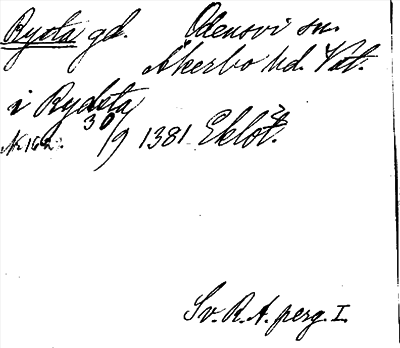 Rysta gd. Odensvi sn.
Åkerbo hd. Vstl.
i Rydsta
Nr 162. 30/9 1381 Eklöf.
Sv. R. A. perg. I.